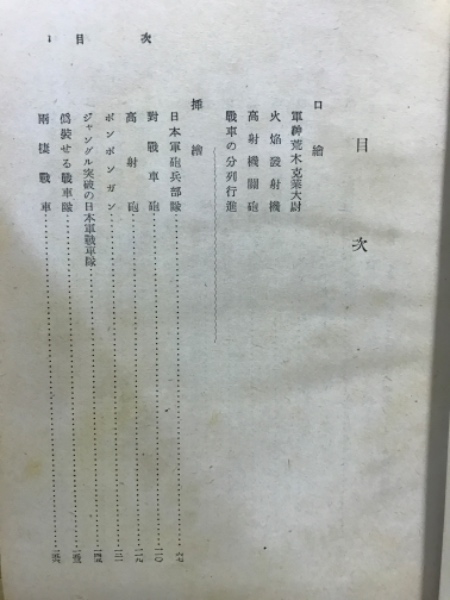 目次 1
目次
口繪
軍神荒木克業大尉
火焰發射機
高射機關砲
戰車の分列行進
挿繪
日本軍砲兵部隊
對戰車砲
高射砲
ポンポンガン
ジャングル突破の日本軍戰車隊
僞裝せる戰車隊
兩棲戰車